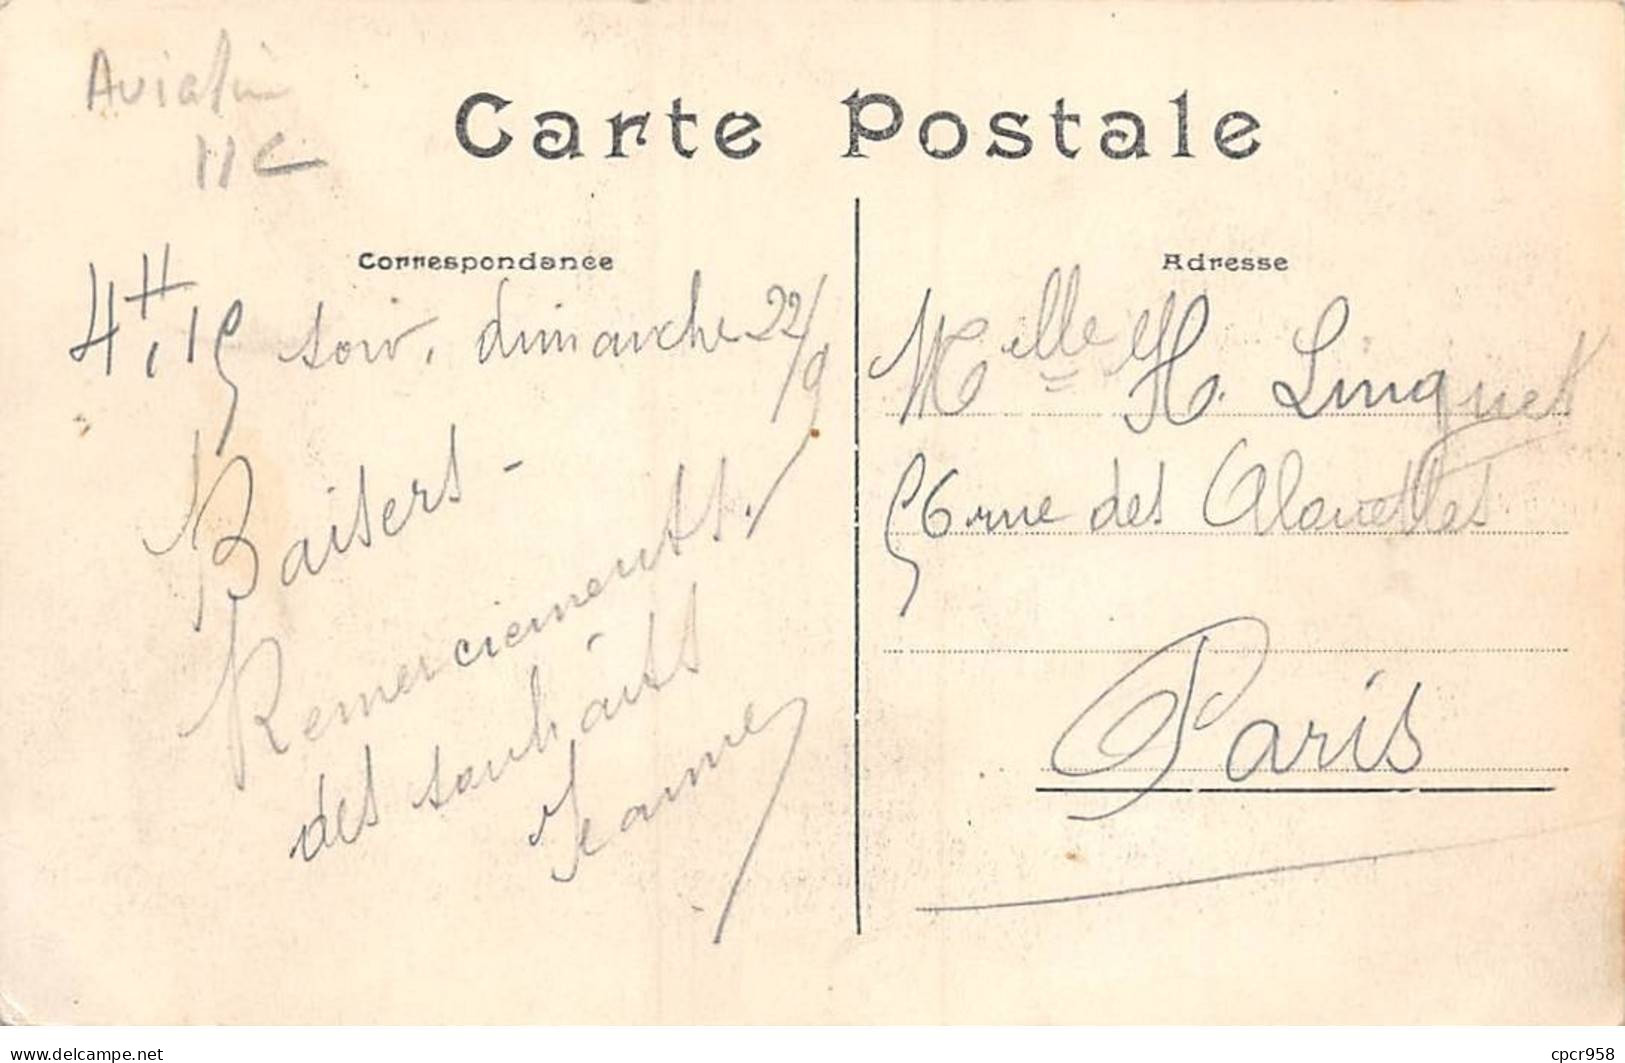 Aviation
11 C
Carte Postale
Correspondance
4H,15 soir, dimanche 22/9
Baisers -
Remerciements
des souhaits
Jeanne
Adresse
Melle H. Linguet
56 rue des Alouettes
Paris
www.delcampe.net
cpcr958